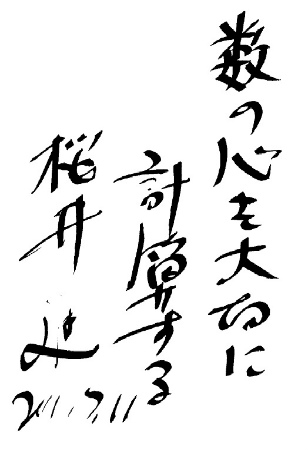 数の心を大切に
計算する
桜井進
2011.7.11